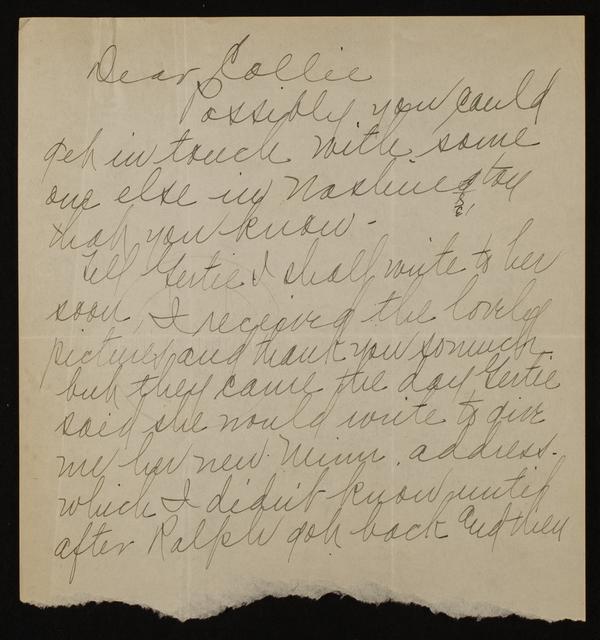 Dear Collie
Possibly you could
get in touch with some
one else in Washington
that you know -
Tell Gertie I shall write to her
soon, I received the lovely
pictures, and thank you so much
but they came the day Gertie
said she would write to give
me her new Minn. address.
which I didn't know until
after Ralph got back and then